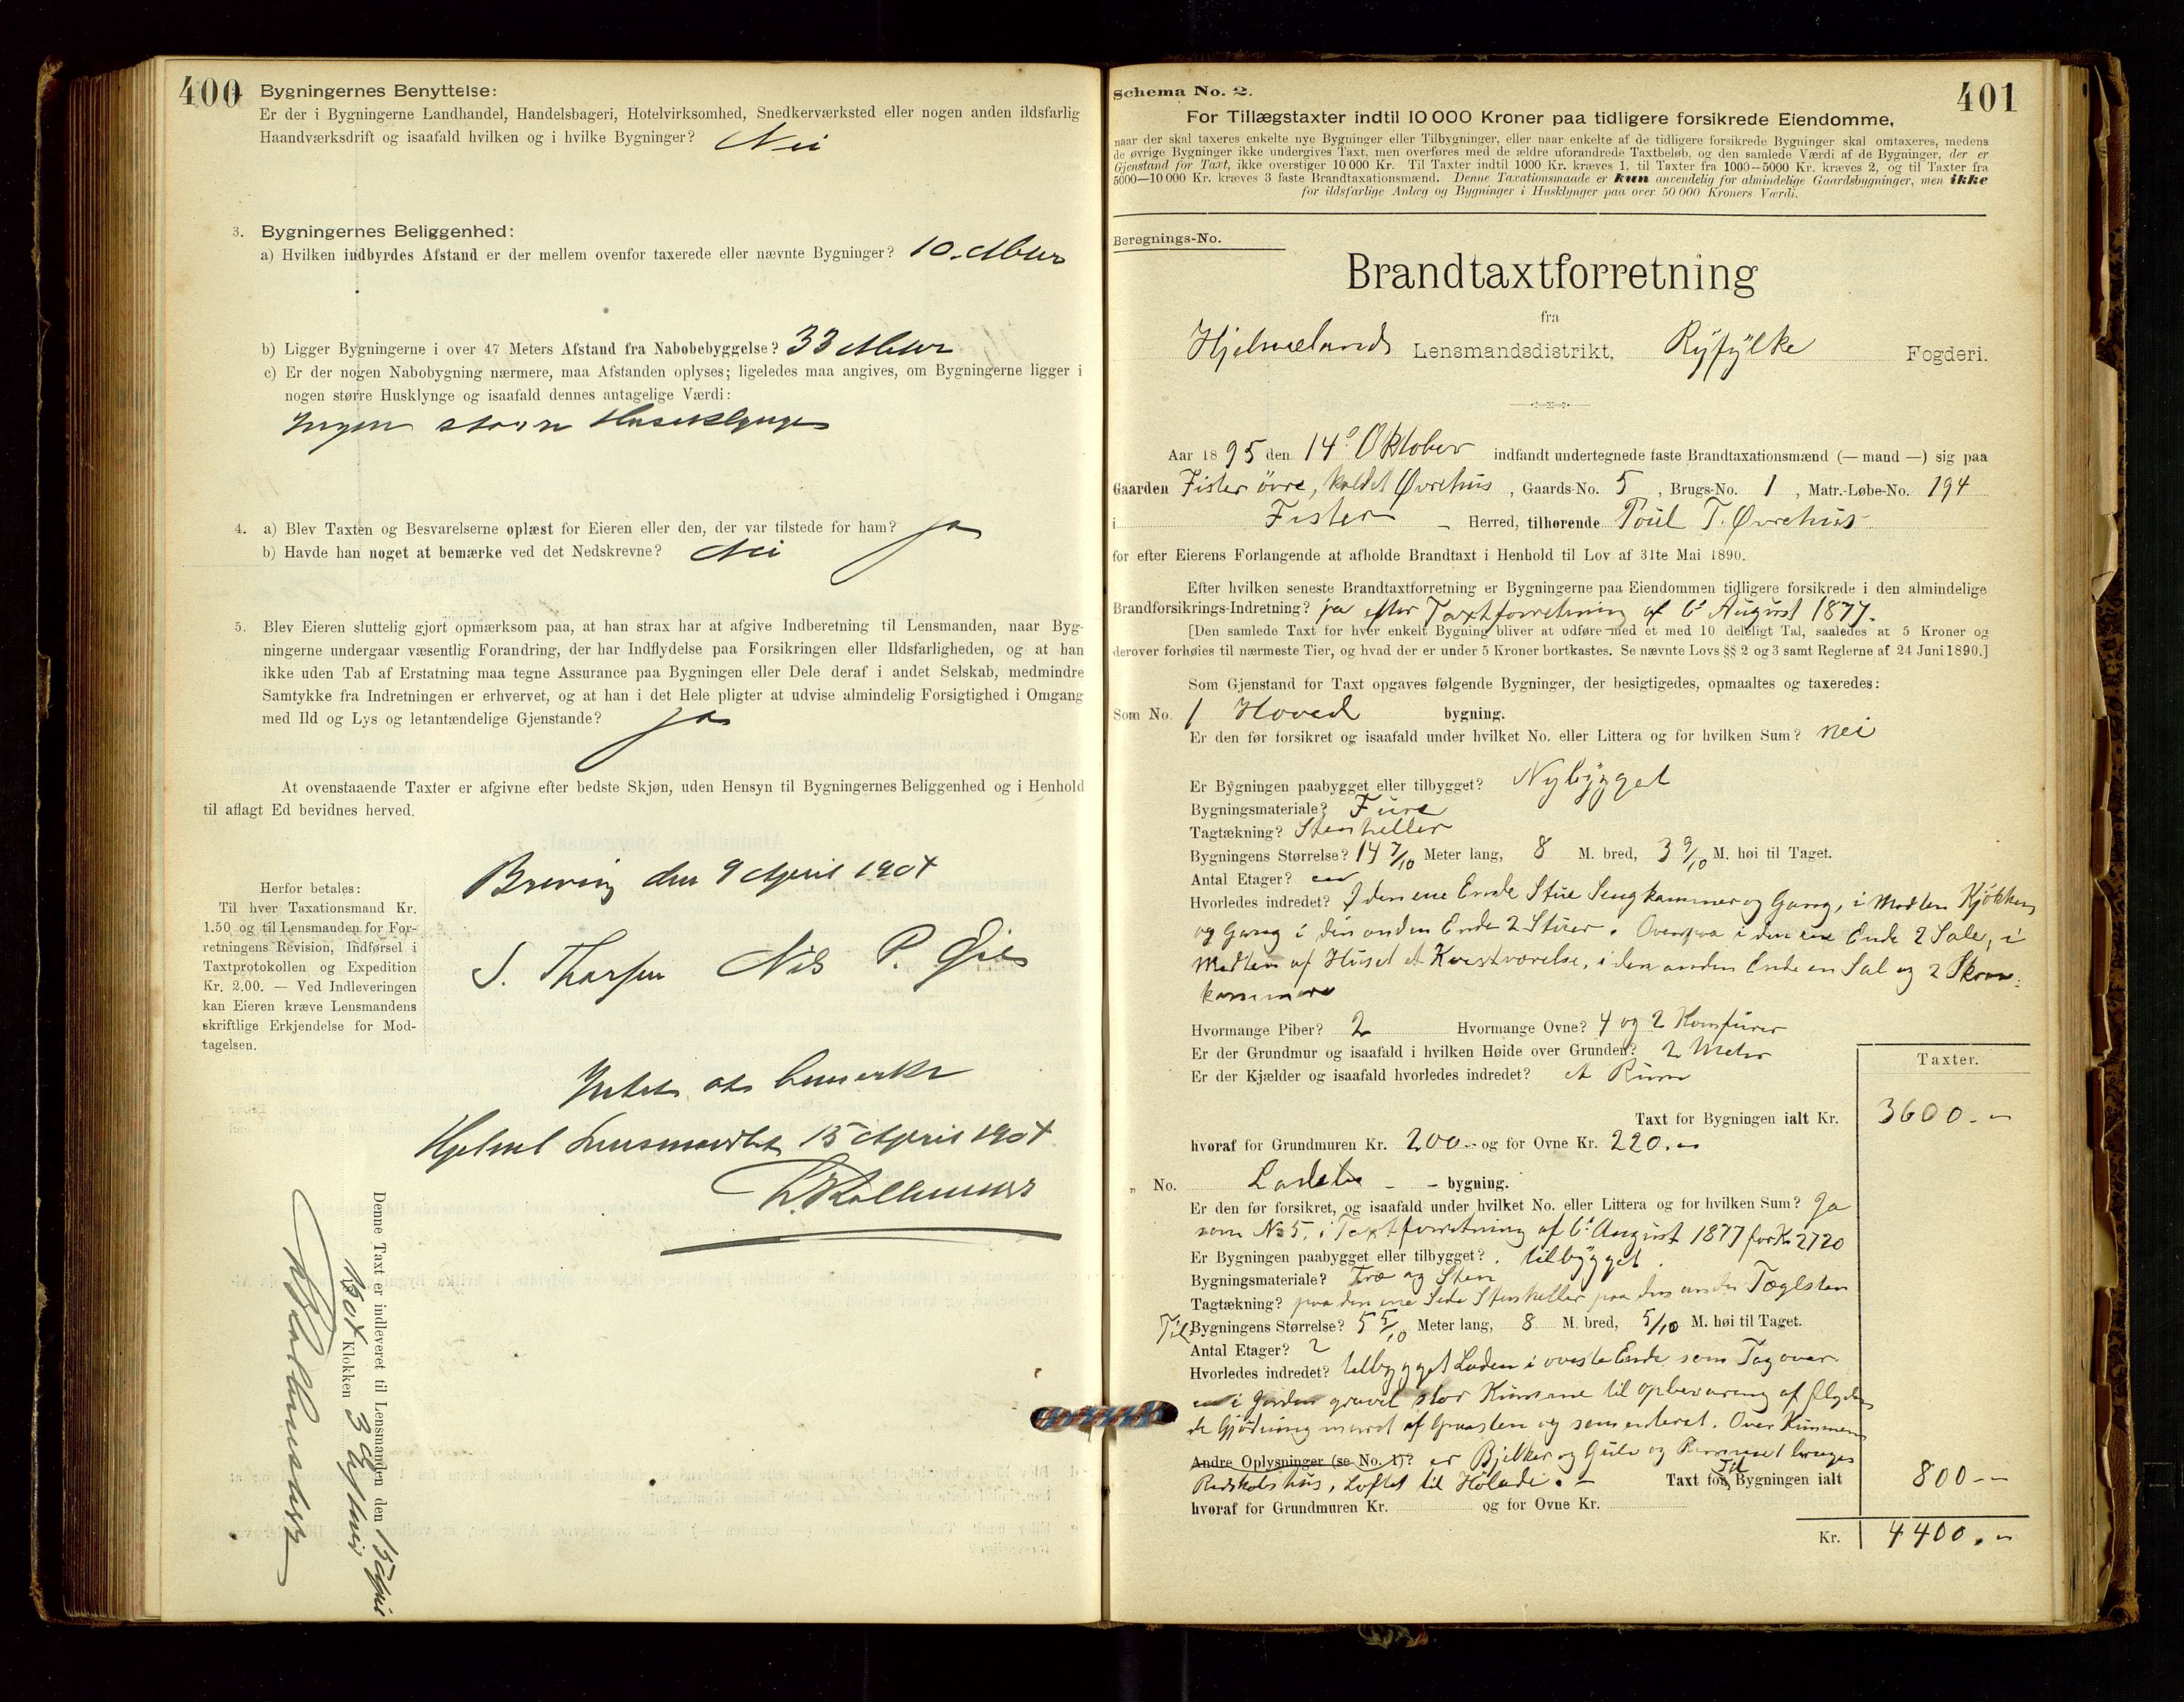 400
Bygningernes Benyttelse:
Er der i Bygningerne Landhandel, Handelsbageri, Hotelvirksomhed, Snedkerværksted eller nogen anden ildsfarlig
Haandværksdrift og isaafald hvilken og i hvilke Bygninger? Nei
3. Bygningernes Beliggenhed:
a) Hvilken indbyrdes Afstand er der mellem ovenfor taxerede eller nævnte Bygninger? 10. Meter
b) Ligger Bygningerne i over 47 Meters Afstand fra Nabobebyggelse? 33 Meter
c) Er der nogen Nabobygning nærmere, maa Afstanden oplyses; ligeledes maa angives, om Bygningerne ligger i
nogen større Husklynge og isaafald dennes antagelige Værdi:
Ingen større Husklynge
4. a) Blev Taxten og Besvarelserne oplæst for Eieren eller den, der var tilstede for ham? Ja
b) Havde han noget at bemærke ved det Nedskrevne? Nei
5. Blev Eieren sluttelig gjort opmærksom paa, at han strax har at afgive Indberetning til Lensmanden, naar Byg-
ningerne undergaar væsentlig Forandring, der har Indflydelse paa Forsikringen eller Ildsfarligheden, og at han
ikke uden Tab af Erstatning maa tegne Assurance paa Bygningen eller Dele deraf i andet Selskab, medmindre
Samtykke fra Indretningen er erhvervet, og at han i det Hele pligter at udvise almindelig Forsigtighed i Omgang
med Ild og Lys og letantændelige Gjenstande? Ja
At ovenstaaende Taxter er afgivne efter bedste Skjøn, uden Hensyn til Bygningernes Beliggenhed og i Henhold
til aflagt Ed bevidnes herved.
den 9 April 1904
S. Thorsen Nils P.
Herfor betales:
Til hver Taxationsmand Kr.
1.50 og til Lensmanden for For-
retningens Revision, Indførsel i
Taxtprotokollen og Expedition
Kr. 2.00. — Ved Indleveringen
kan Eieren kræve Lensmandens
skriftlige Erkjendelse for Mod-
tagelsen.
Intet at bemærke
Hjelmel Lensmandsb 15 April 1904
Denne Taxt er indleveret til Lensmanden den 15 April
1904 Klokken 3
401
Schema No. 2.
For Tillægstaxter indtil 10 000 Kroner paa tidligere forsikrede Eiendomme,
naar der skal taxeres enkelte nye Bygninger eller Tilbygninger, eller naar enkelte af de tidligere forsikrede Bygninger skal omtaxeres, medens
de øvrige Bygninger ikke undergives Taxt, men overføres med de ældre uforandrede Taxtbeløb, og den samlede Værdi af de Bygninger, der er
Gjenstand for Taxt, ikke overstiger 10 000 Kr. Til Taxter indtil 1000 Kr. kræves 1, til Taxter fra 1000—5000 Kr. kræves 2, og til Taxter fra
5000—10 000 Kr. kræves 3 faste Brandtaxationsmænd. Denne Taxationsmaade er kun anvendelig for almindelige Gaardsbygninger, men ikke
for ildsfarlige Anlæg og Bygninger i Husklynger paa over 50 000 Kroners Værdi.
Beregnings-No.
Brandtaxtforretning
fra
Hjelmelands Lensmandsdistrikt, Ryfylke Fogderi.
Aar 1895 den 14de Oktober indfandt undertegnede faste Brandtaxationsmænd (— mand —) sig paa
Gaarden Fister øvre, kaldet Øvrehus, Gaards-No. 5, Brugs-No. 1, Matr.-Løbe-No. 194
i Fister - Herred, tilhørende Poul T. Øvrehus
for efter Eierens Forlangende at afholde Brandtaxt i Henhold til Lov af 31te Mai 1890.
Efter hvilken seneste Brandtaxtforretning er Bygningerne paa Eiendommen tidligere forsikrede i den almindelige
Brandforsikrings-Indretning? ja efter Taxtforretning af 6te August 1877.
[Den samlede Taxt for hver enkelt Bygning bliver at udføre med et med 10 deleligt Tal, saaledes at 5 Kroner og
derover forhøies til nærmeste Tier, og hvad der er under 5 Kroner bortkastes. Se nævnte Lovs §§ 2 og 3 samt Reglerne af 24 Juni 1890.]
Som Gjenstand for Taxt opgaves følgende Bygninger, der besigtigedes, opmaaltes og taxeredes:
Som No. 1 Hoved bygning.
Er den før forsikret og isaafald under hvilket No. eller Littera og for hvilken Sum? nei
Er Bygningen paabygget eller tilbygget? Nybygget
Bygningsmateriale? Fure
Tagtækning? Stenheller
Bygningens Størrelse? 14 7/10 Meter lang, 8 M. bred, 3 9/10 M. høi til Taget.
Antal Etager? en
Hvorledes indredet? I den ene Ende Stue Sengkammer og Gang, i Midten Kjøkken
og Gang i den anden Ende 2 Stuer. Ovenpaa i den ene Ende 2 Sale, i
Midten af Huset et Kvistværelse, i den anden Ende en Sal og 2 Skraa-
kammere
Hvormange Piber? 2 Hvormange Ovne? 4 og 2 Komfurer
Er der Grundmur og isaafald i hvilken Høide over Grunden? 2 Meter
Er der Kjælder og isaafald hvorledes indredet? et Rum
Taxter.
Taxt for Bygningen ialt Kr. 3600.-
hvoraf for Grundmuren Kr. 200.- og for Ovne Kr. 220.-
„ No. Lade - - bygning.
Er den før forsikret, og isaafald under hvilket No. eller Littera og for hvilken Sum? Ja
som No 5. i Taxtforretning af 6te August 1877 for Kr 2720
Er Bygningen paabygget eller tilbygget? tilbygget
Bygningsmateriale? Træ og Sten
Tagtækning? paa den ene Side Stenheller paa den anden Tæglsten
Til Bygningens Størrelse? 5 5/10 Meter lang, 8 M. bred, 5/10 M. høi til Taget.
Antal Etager? 2
Hvorledes indredet? tilbygget Laden i øverste Ende som Tag over
en i Jorden gravet stor Kumme til opbevaring af flyden
de Gjødning muret af Graasten og sementeret. Over Kummen
Andre Oplysninger (se No. 1)? er Bjelker og Gulv og Rummet bruges
Redskabshus, Loftet til Hølade. - Taxt for Til Bygningen ialt 800--
hvoraf for Grundmuren Kr. og for Ovne Kr.
Kr. 4400.-